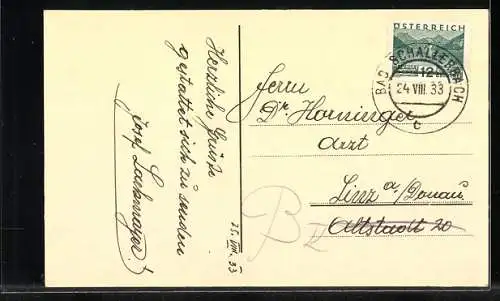 Herzliche Grüße
gestattet sich zu senden
Josef Lackmayer!
25. VIII. 33
ÖSTERREICH
BAD SCHALLERBACH
12
24 VIII. 33
c
Herrn
Dr. Horninger
Arzt
Linz a/Donau
Altstadt 20
B II